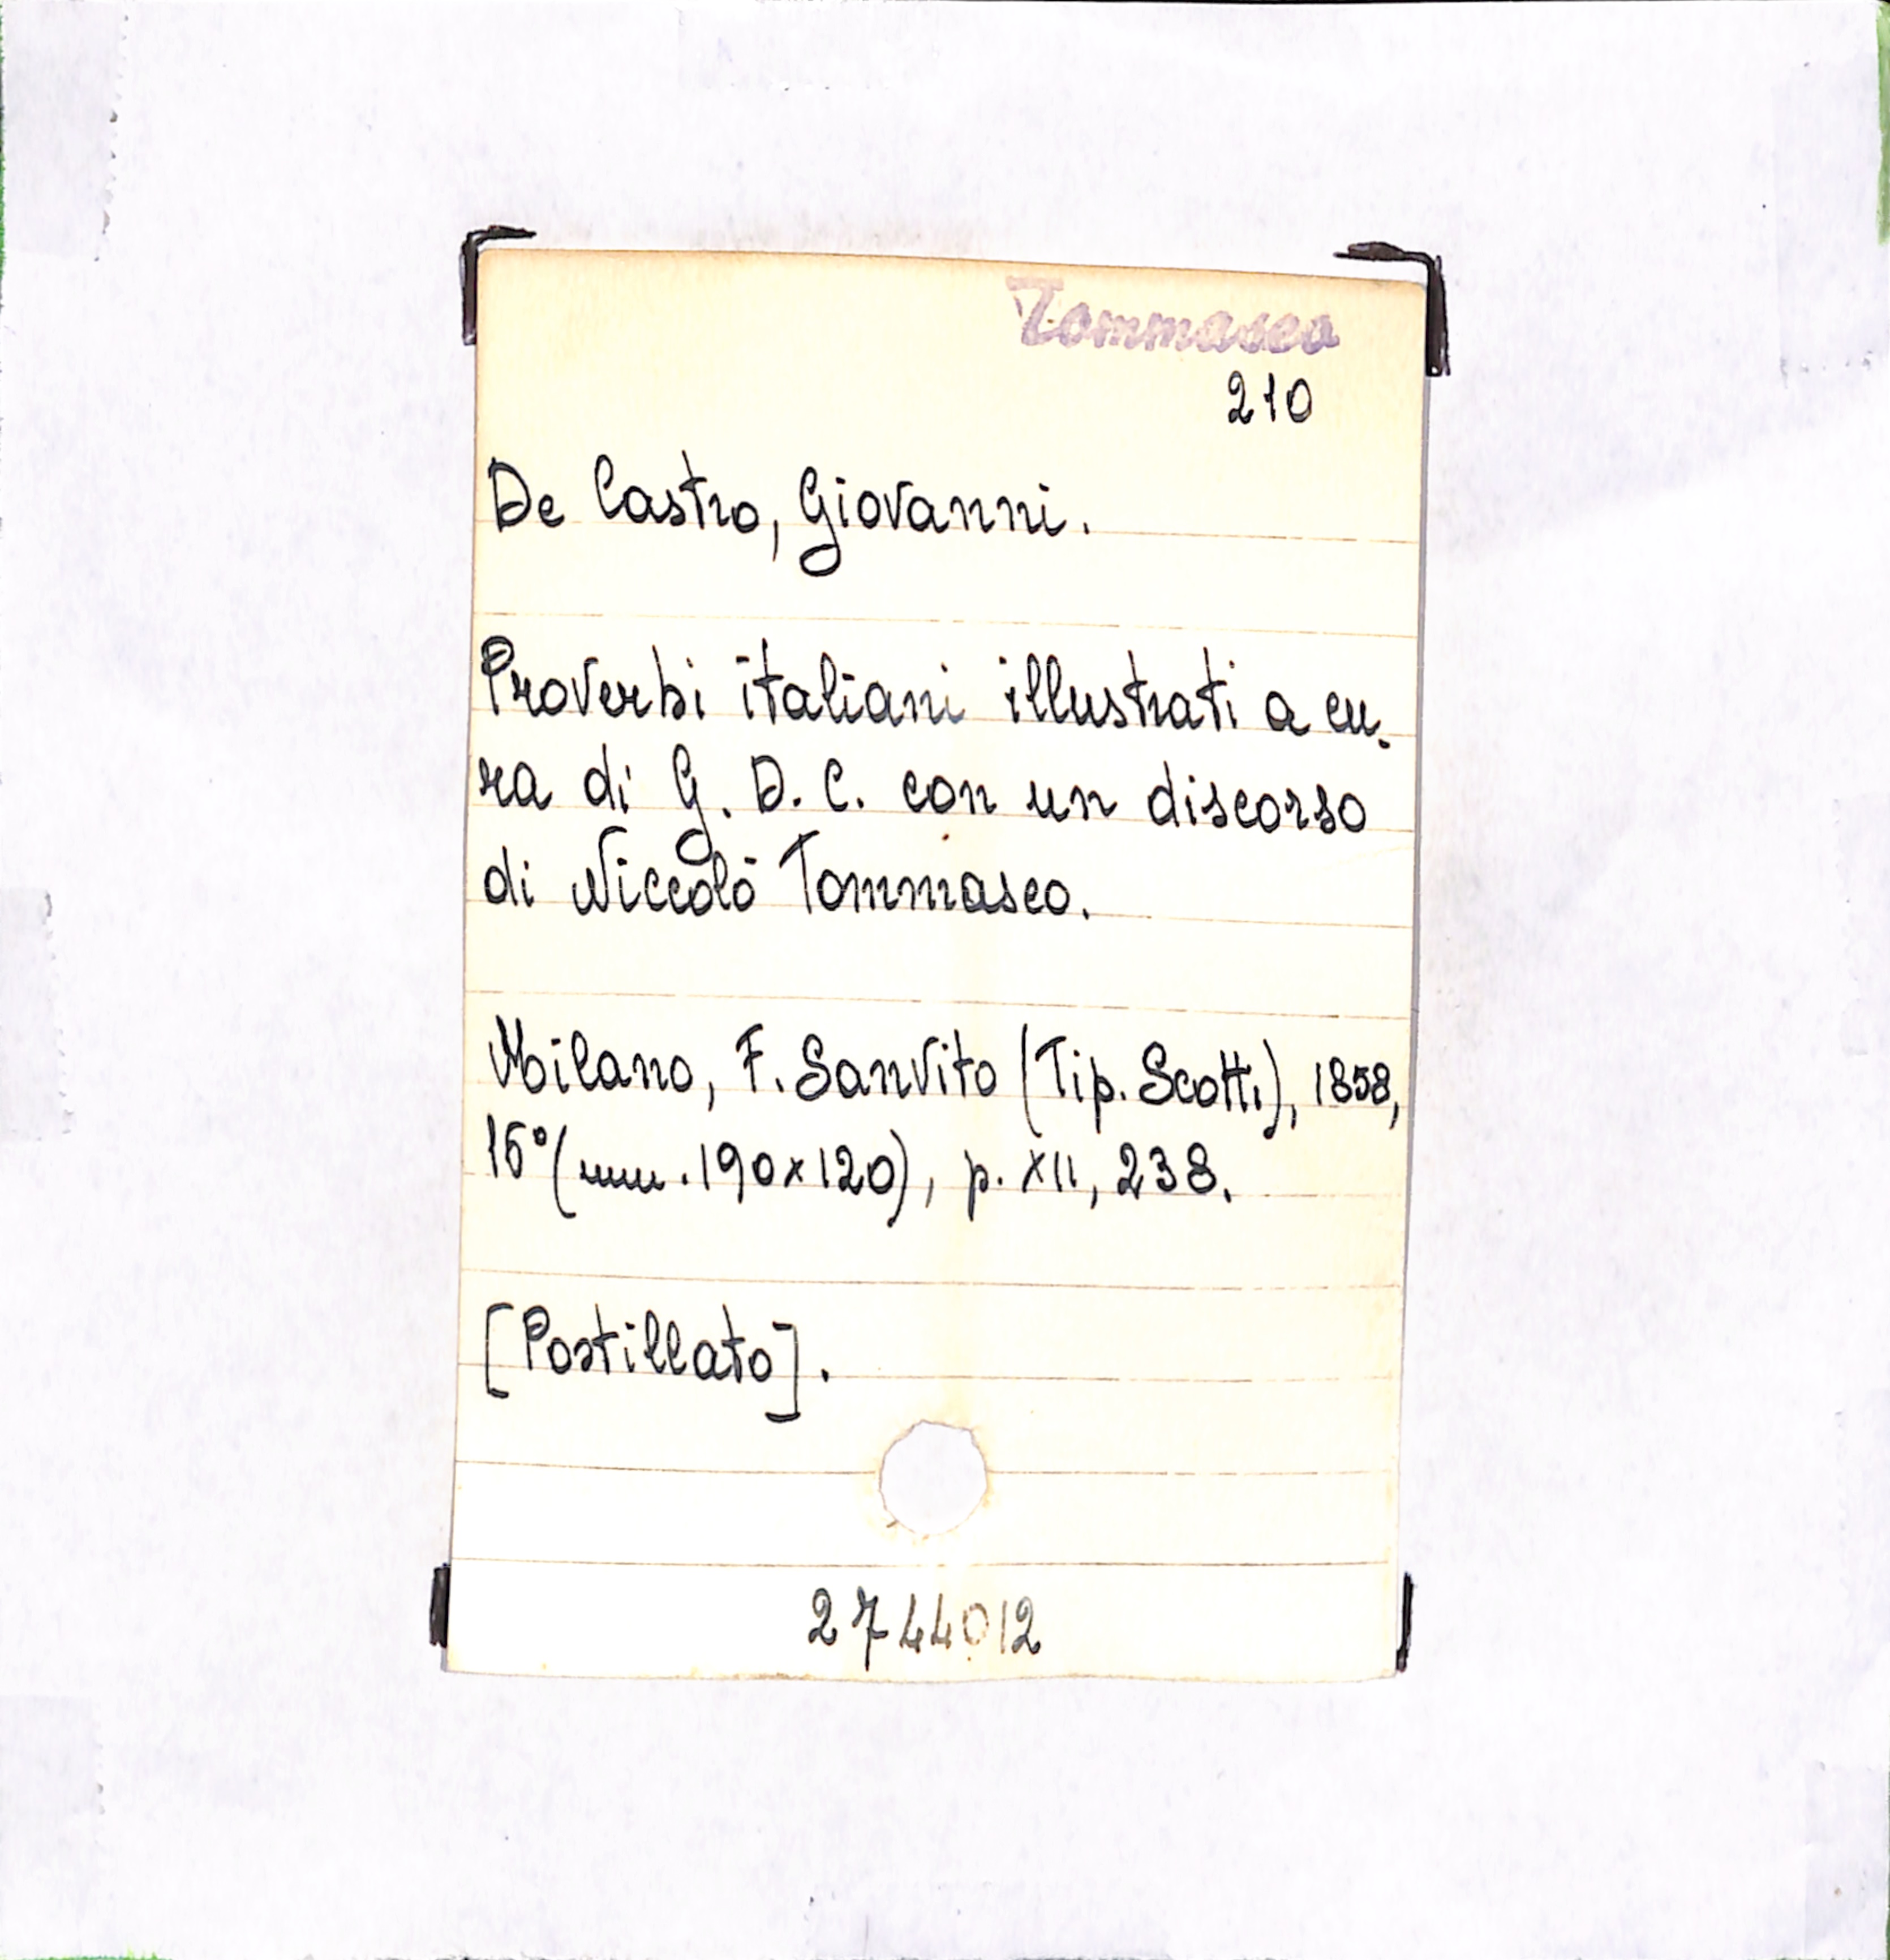 Tommaseo
210
De Castro, Giovanni.
Proverbi italiani illustrati a cu-
ra di G. D. C. con un discorso
di Niccolò Tommaseo.
Milano, F. Sanvito (Tip. Scotti), 1858,
16° (mm. 190x120), p. XII, 238.
[Postillato].
2744012